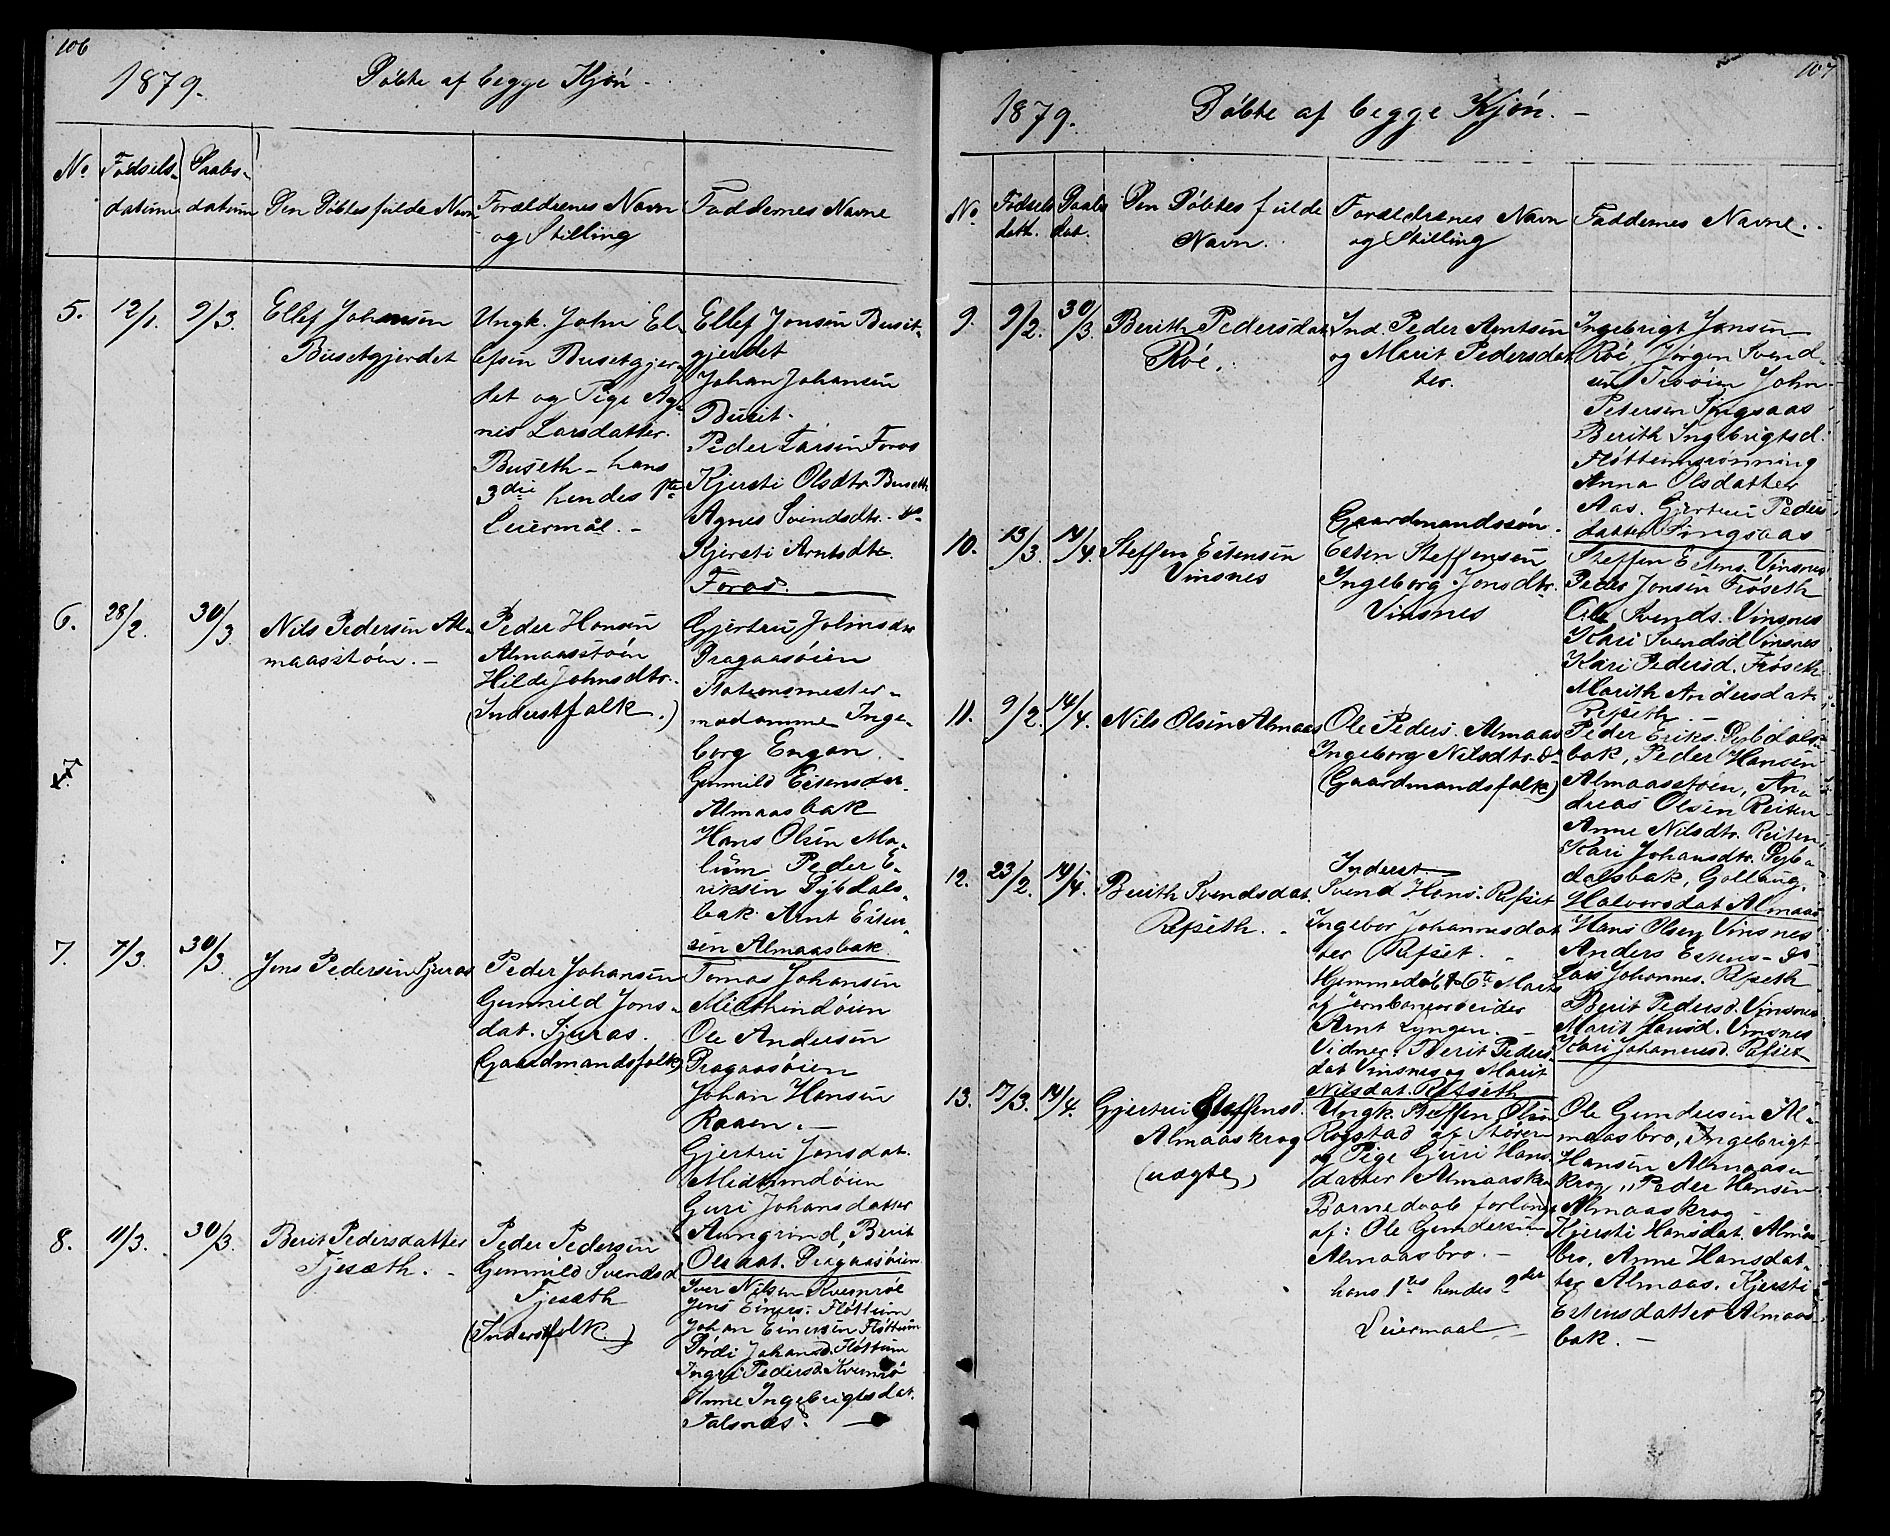 106
1879.
Döbte af begge Kjön.
No
Födsels-
datum
Daabs-
datum
Den Döbtes fulde Navn
Forældrenes Navn
og Stilling
Faddernes Navne
5.
12/1.
9/3.
Ellef Johnsen
Busetgjerdet
Ungk. John El-
lefsen Busetgjer-
det og Pige Ag-
nes Larsdatter
Buseth - hans
3die hendes 1te
Leiermål. -
Ellef Jonsen Buset-
gjerdet
Johan Johansen
Buset.
Peder Larsen Foros
Kjersti Olsdtr. Buseth
Agnes Svendsdtr. do
Kjersti Arntsdtr.
Foros.
6.
28/2.
30/3
Nils Pedersen Al-
maasstöen. -
Peder Hansen
Almaasstöen
Hilde Johnsdtr.
(Inderstfolk.)
Gjertru Johnsdtr
Dragaasöien
Stationsmester-
madamme Inge-
borg Engan.
Gunnild Estensdtr.
Almaasbak
Hans Olsen Mo-
Peder E-
riksen Dybdals-
bak. Arnt Esten-
sen Almaasbak.
7.
7.
7/3.
30/3.
Jens Pedersen Sjuros
Peder Johansen
Gunnild Jons-
dat. Sjuros.
Gaardmandsfolk
Tomas Johansen
Midthindöien
Ole Andersen
Dragaasöien
Johan Hansen
Raaen. -
Gjertru Jonsdat.
Midthindöien
Guri Johansdatter
Aungrind, Berit
Olsdat. Dragaasöien
8.
11/3.
30/3.
Berit Pedersdatter
Fjesæth. -
Peder Pedersen
Gunnild Svendsd
Fjesæth
(Inderstfolk.)
Iver Nilsen Kvernröe
Jens Einers. Flöttum
Johan Einersen Flöttum
Dordi Johansd. Flöttum
Ingri Pedersd. Kvernrö
Anne Ingebrigtsdat.
Talsnæs. -
107
1879.
Döbte af begge Kjön. -
No
Födsels
dath.
Daabs
dat.
Den Döbtes fulde
Navn.
Forældrenes Navn
og Stilling
Faddernes Navne.
9.
9/2.
30/3.
Berith Pedersdat
Röe.
Ind. Peder Arntsen
og Marit Pedersdat
ter.
Ingebrigt Jonsen
Röe, Jörgen Svend-
sen John
Petersen Singsaas
Berith Ingebrigtsd.
Flöttumsrönning
Anna Olsdatter
Aas. Gjertru Peders
datter Singsaas
10.
13/3
14/4.
Steffen Estensen
Vinsnes
Gaardmandssön.
Esten Steffensen
Ingeborg Jonsdtr.
Vinsnes
Steffen Estens. Vinsnes
Peder Jonsen Fröseth
Ole Svends. Vinsnes
Kari Svendsd Vinsnes
Kari Pedersd. Fröseth
Marith Andersdat
Refseth. -
11.
9/2.
14/4.
Nils Olsen Almaas
Ole Peders. Almaas
Ingeborg Nilsdtr. do
(Gaardmandsfolk)
Peder Eriks. Dybdals-
bak, Peder Hansen
Almaasstöen, An-
dreas Olsen Reiten
Anne Nilsdtr. Reiten,
Kari Johansdtr. Dyb-
dalsbak, Gollaug
Halvorsdat Almaas
12.
23/2.
14/4.
Berith Svendsdat.
Refseth. -
Inderst
Svend Hans. Refset
Ingebor Johannesdat
ter Refset. -
Hjemmedöbt 6te Marts
af Jernbanearbeider
Arnt Lyngen. -
Vidner: Berit Peders-
dat Vinsnes og Marit
Nilsdat. Refseth
Hans Olsen Vinsnes
Anders do
Lars Johannes. Refseth
Berit Pedersd. Vinsnes
Marit Hansd. Vinsnes
Kari Johannesd. Refset
13.
17/3.
14/4.
Gjertru Steffensd.
Almaaskrog
(uægte)
Ungk. Steffen Olsen
Rogstad af Stören
og Pige Guri Hans
datter Almaaskro
Barnedaab forlangt
af: Ole Gundersen
Almaasbro. -
hans 1tes hendes 2det
Leiermaal -
Ole Gundersen Al-
maasbro, Ingebrigt
Hansen Almaas-
krog, Peder Hansen
Almaaskrog
Kjersti Hansdat. Almaas
bro, Anne Hansdat-
ter Almaas. Kjersti
Estensdatter Almaas
bak. -